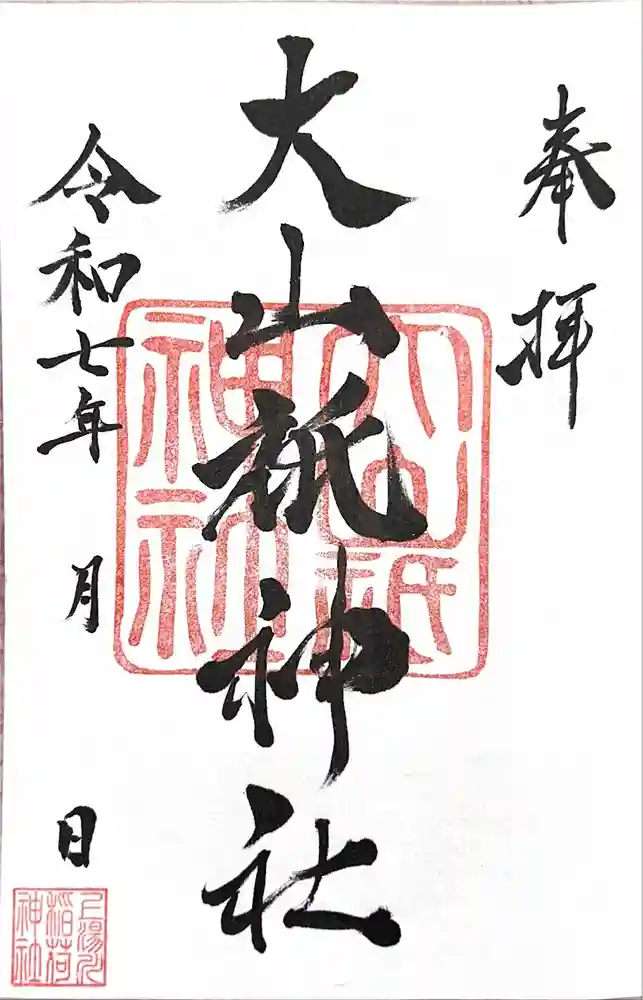 奉拝
大山祇神社
大山祇神社
令和七年 月 日
稲荷神社